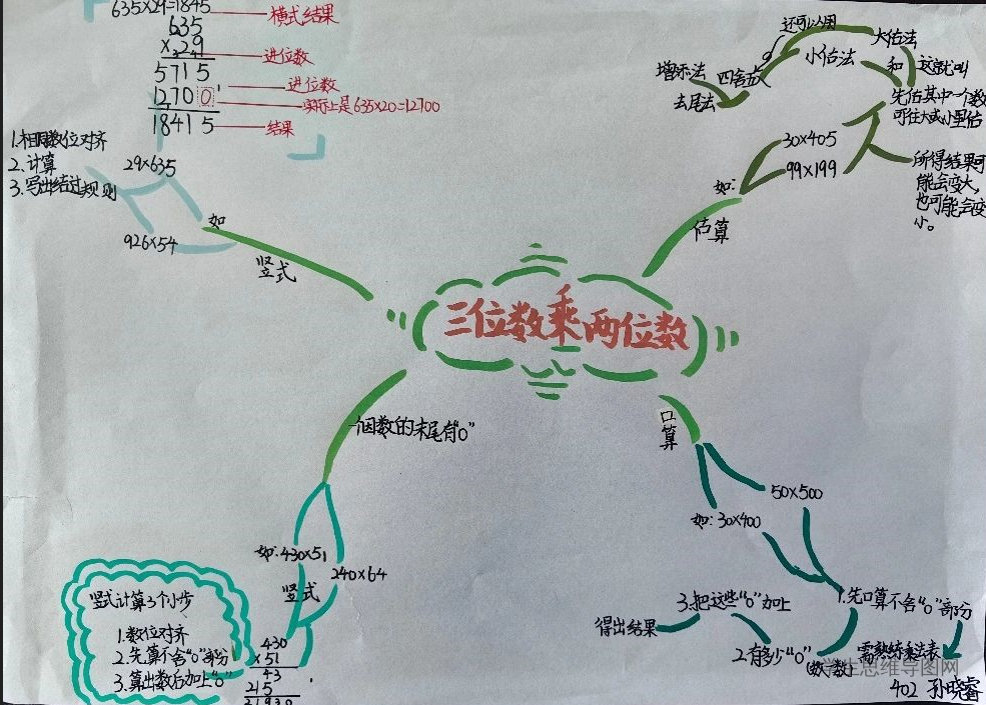 635×29=1845
横式结果
635
×29
进位数
5715
进位数
1270 0
实际上是635×20=12700
18415
结果
1.相同数位对齐
2.计算
3.写出结过规则
29×635
926×54
如
竖式
还可以用
大估法
和
小估法
这就叫
四舍五入
增添法
去尾法
先估其中一个数
可往大或小里估
30×405
99×199
如:
估算
所得结果可
能会变大,
也可能会变
小。
三位数乘两位数
一个因数的末尾有“0”
如:430×51
240×64
竖式
竖式计算3个小步
1.数位对齐
2.先算不含“0”部分
3.算出数后加上“0”
430
×51
43
215
21930
口算
50×500
如:30×400
1.先口算不含“0”部分
需熟练乘法表
2.有多少“0”
(数一数)
3.把这些“0”加上
得出结果
学生思维导图网
402 孙晓睿